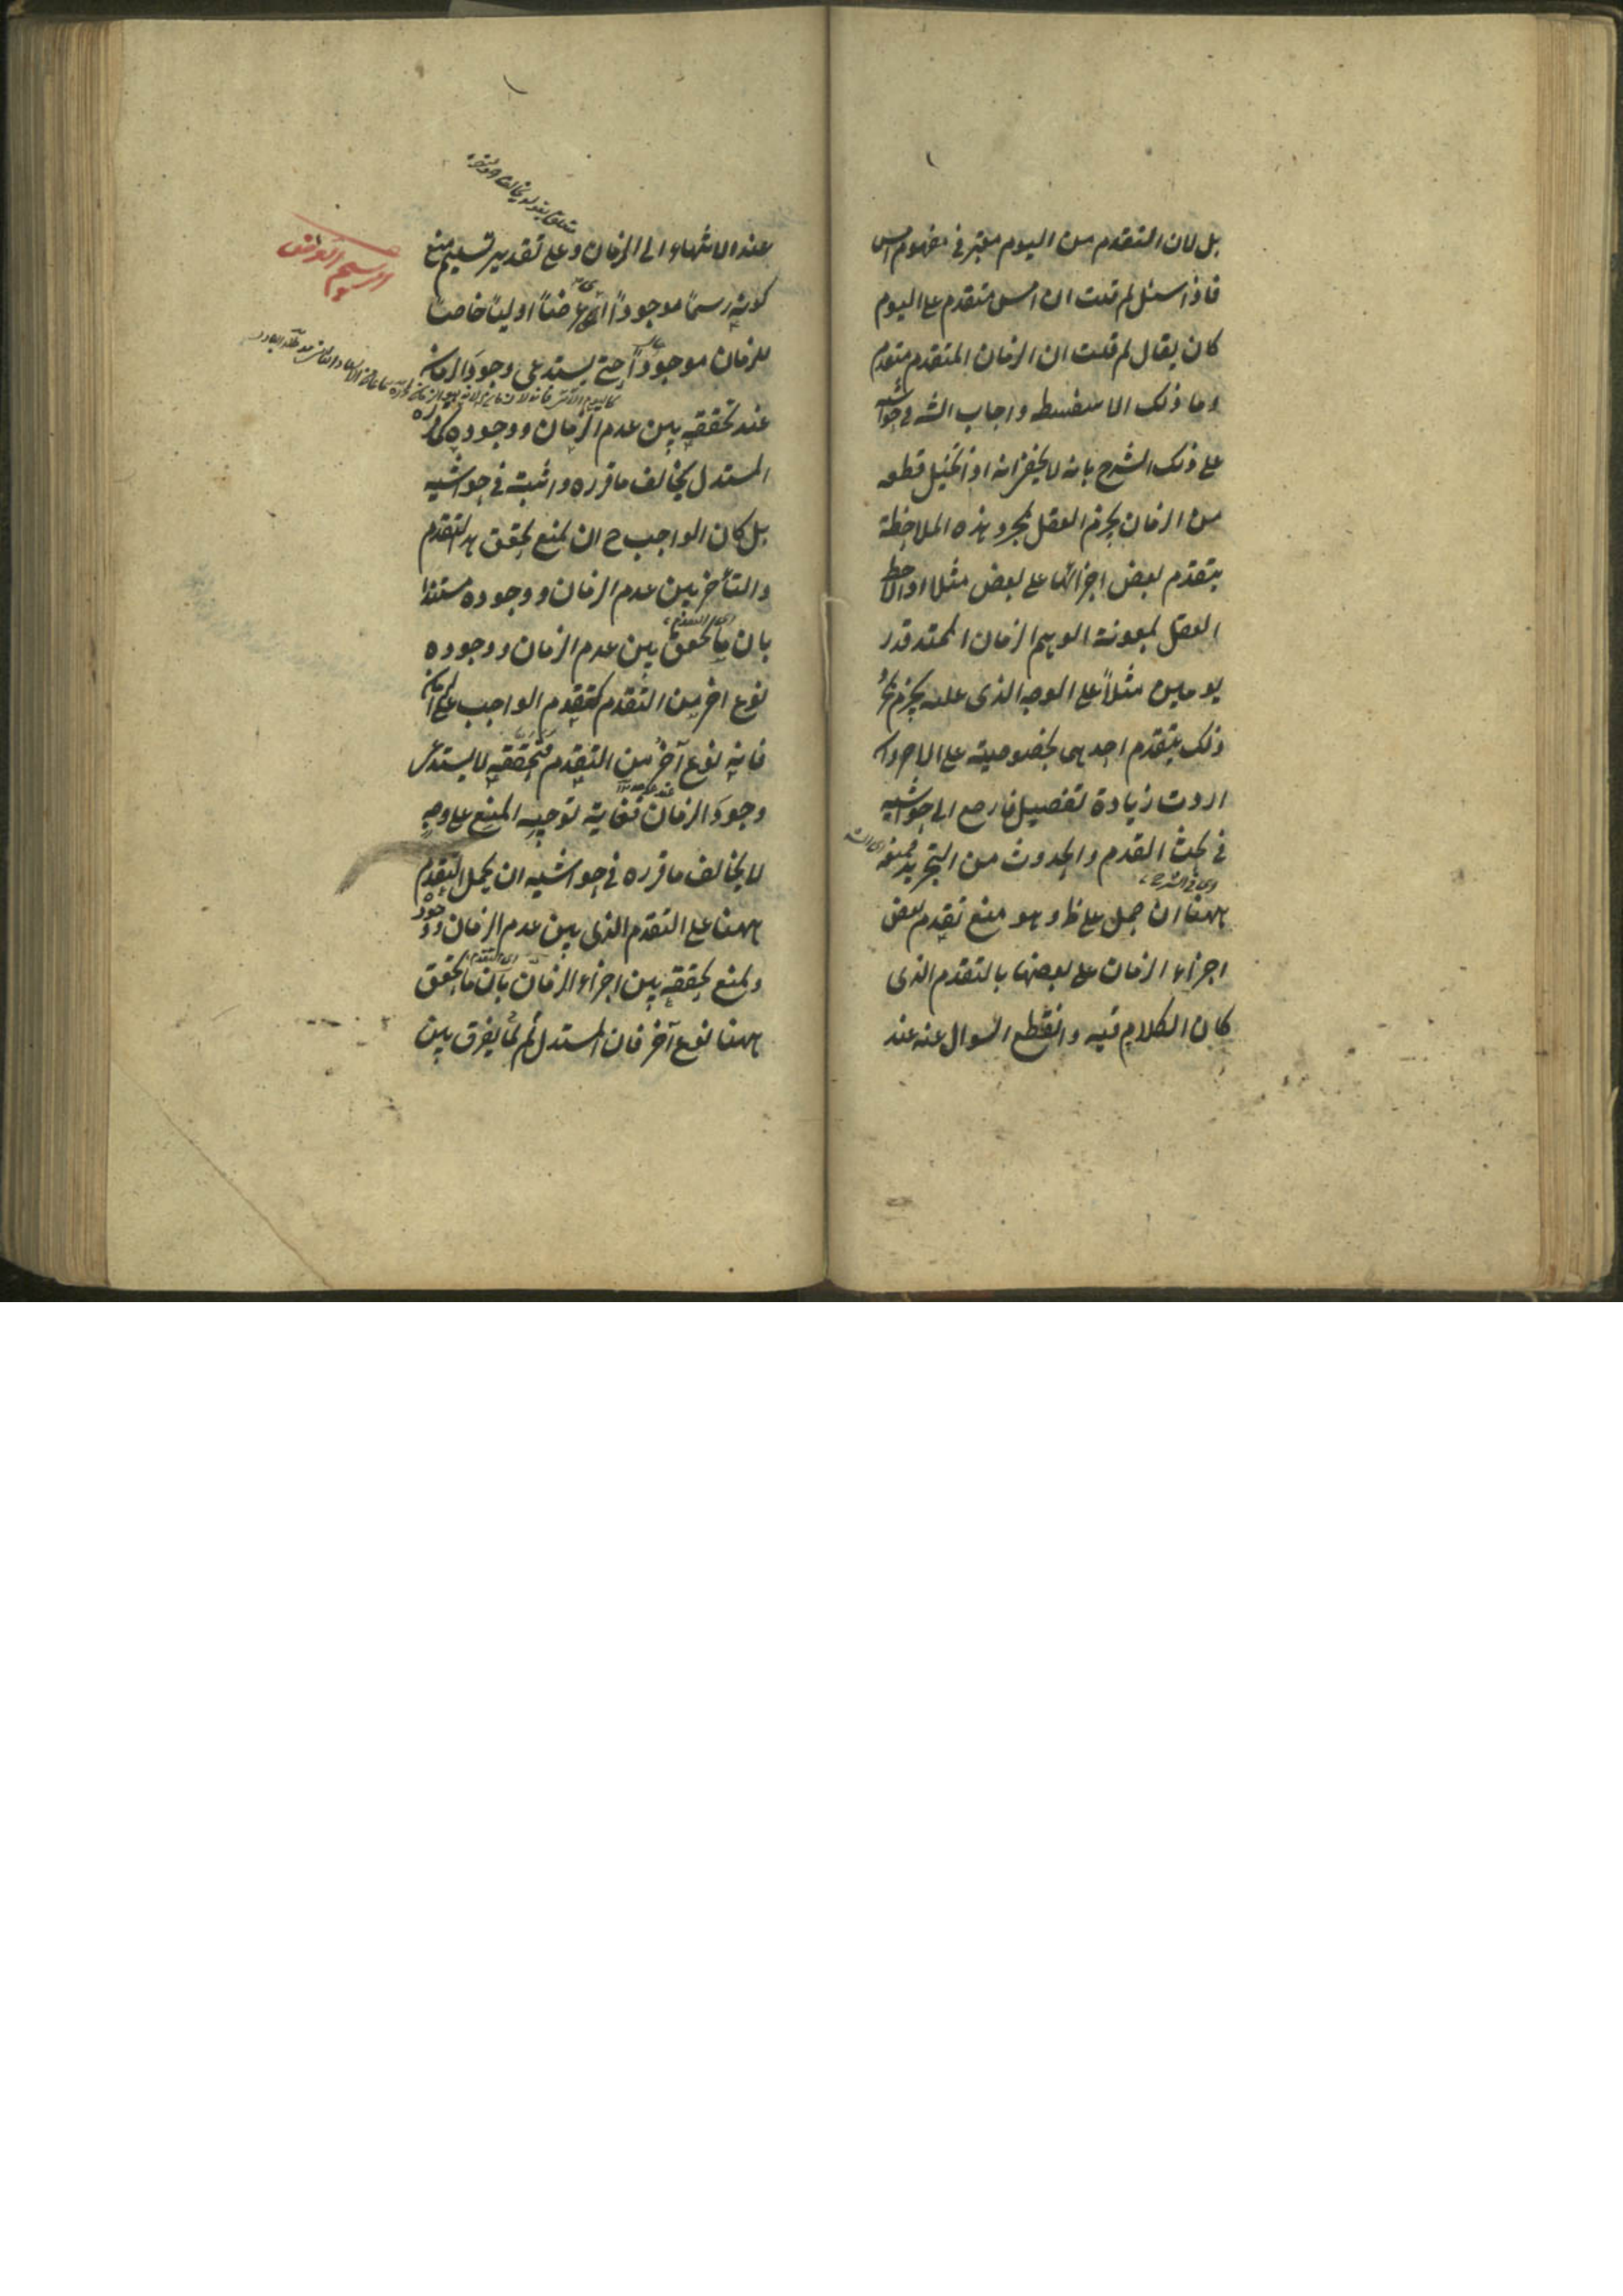 بل لان التقدم من اليوم معتبر في مفهوم امس
فاذا سئل لم قلت ان امس متقدم على اليوم
كان يقال لم قلت ان الزمان المتقدم متقدم
وما ذلك الا سفسطه واجاب الشه في حواشيه
على ذلك الشرح بانه لا يخفى انه اذا تخيل قطعه
من الزمان يجزم العقل بمجرد هذه الملاحظة
بتقدم بعض اجزائها على بعض مثلا اذا لاحظ
العقل بمعونة الوهم الزمان الممتد قدر
يومين مثلاً على الوجه الذى عليه يجزم
ذلك بتقدم احدهما بخصوصيته على الاخر وان
اردت زيادة تفصيل فارجع الى حواشيه
في بحث القدم والحدوث من التجريد فمنعه
اى في الشرح
ههنا ان حمل على ظ وهو منع تقدم بعض
اجزاء الزمان على بعضها بالتقدم الذى
كان الكلام فيه وانقطع السوال عنه عند
عند الانتهاء الى الزمان وعلى تقدير تسليم منع
كونه رسماً موجوداً اى عرضاً اولياً خاصاً
للزمان موجوداً حتى يستدعى وجود الزمان
عند تحققه بين عدم الزمان ووجوده كما قرره
المستدل يخالف ما قرره واثبته في حواشيه
بل كان الواجب ح ان يمنع تحقق هذا التقدم
والتأخر بين عدم الزمان ووجوده مستندا
اى التقدم
بان ما تحقق بين عدم الزمان ووجوده
نوع اخر من التقدم كتقدم الواجب على الزمان
فانه نوع آخر من التقدم فتحققه لا يستدعى
وجود الزمان فغاية توجيه المنع على وجه
لا يخالف ما قرره في حواشيه ان يحمل التقدم
ههنا على التقدم الذى بين عدم الزمان ووجوده
اى التقدم
ويمنع تحققه بين اجزاء الزمان بان ما تحقق
ههنا نوع آخر فان المستدل لم يفرق بين